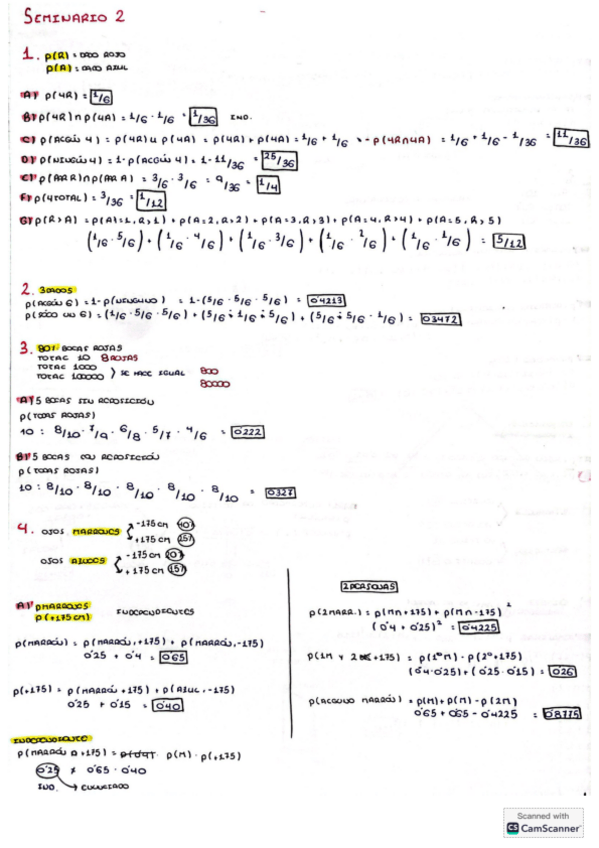 SEMINARIO 2
1. P(R) = DADO ROJO
P(A) = DADO AZUL
A) P(4R) = 1/6
B) P(4R) ∩ P(4A) = 1/6 · 1/6 = 1/36 IND.
C) P(ALGÚN 4) = P(4R) U P(4A) = P(4R) + P(4A) = 1/6 + 1/6 - P(4R∩4A) = 1/6 + 1/6 - 1/36 = 11/36
D) P(NINGÚN 4) = 1 - P(ALGÚN 4) = 1 - 11/36 = 25/36
P(PAR R) ∩ P(PAR A) = 3/6 · 3/6 = 9/36 = 1/4
F) P(4 TOTAL) = 3/36 = 1/12
G) P(R>A) = P(A=1, R>1) + P(A=2, R>2) + P(A=3, R>3) + P(A=4, R>4) + P(A=5, R>5)
(1/6 · 5/6) + (1/6 · 4/6) + (1/6 · 3/6) + (1/6 · 2/6) + (1/6 · 1/6) = 5/12
2. 3 DADOS
P(ALGÚN 6) = 1 - P(NINGUNO) = 1 - (5/6 · 5/6 · 5/6) = 0'4213
P(SÓLO UN 6) = (1/6 · 5/6 · 5/6) + (5/6 · 1/6 · 5/6) + (5/6 · 5/6 · 1/6) = 0'3472
3. 80% BOLAS ROJAS
TOTAL 10 8 ROJAS
TOTAL 1000
TOTAL 100000 } SE HACE IGUAL 800
80000
A) 5 BOLAS SIN REPOSICIÓN
P(TODAS ROJAS)
10 : 8/10 · 7/9 · 6/8 · 5/7 · 4/6 = 0'222
B) 5 BOLAS CON REPOSICIÓN
P(TODAS ROJAS)
10 : 8/10 · 8/10 · 8/10 · 8/10 · 8/10 = 0'327
4. OJOS MARRONES -175 cm 40%
+175 cm 25%
OJOS AZULES -175 cm 20%
+175 cm 15%
A) P MARRONES
P(+175 cm) INDEPENDIENTES
P(MARRÓN) = P(MARRÓN, +175) + P(MARRÓN, -175)
0'25 + 0'4 = 0'65
P(+175) = P(MARRÓN +175) + P(AZUL, -175)
0'25 + 0'15 = 0'40
INDEPENDIENTE
P(MARRÓN ∩ +175) = P(M) · P(+175)
0'25 ≠ 0'65 · 0'40
IND.
2 PERSONAS
P(2 MARR.) = P(M∩+175) + P(M∩-175)²
(0'4 + 0'25)² = 0'4225
= P(1ºM) · P(2º+175)
(0'4 · 0'25) + (0'25 · 0'15) = 026
P(ALGUNO MARRÓN) = P(M) + P(M) - P(2M)
0'65 + 0'65 - 0'4225 = 0'8775
Scanned with
CS CamScanner